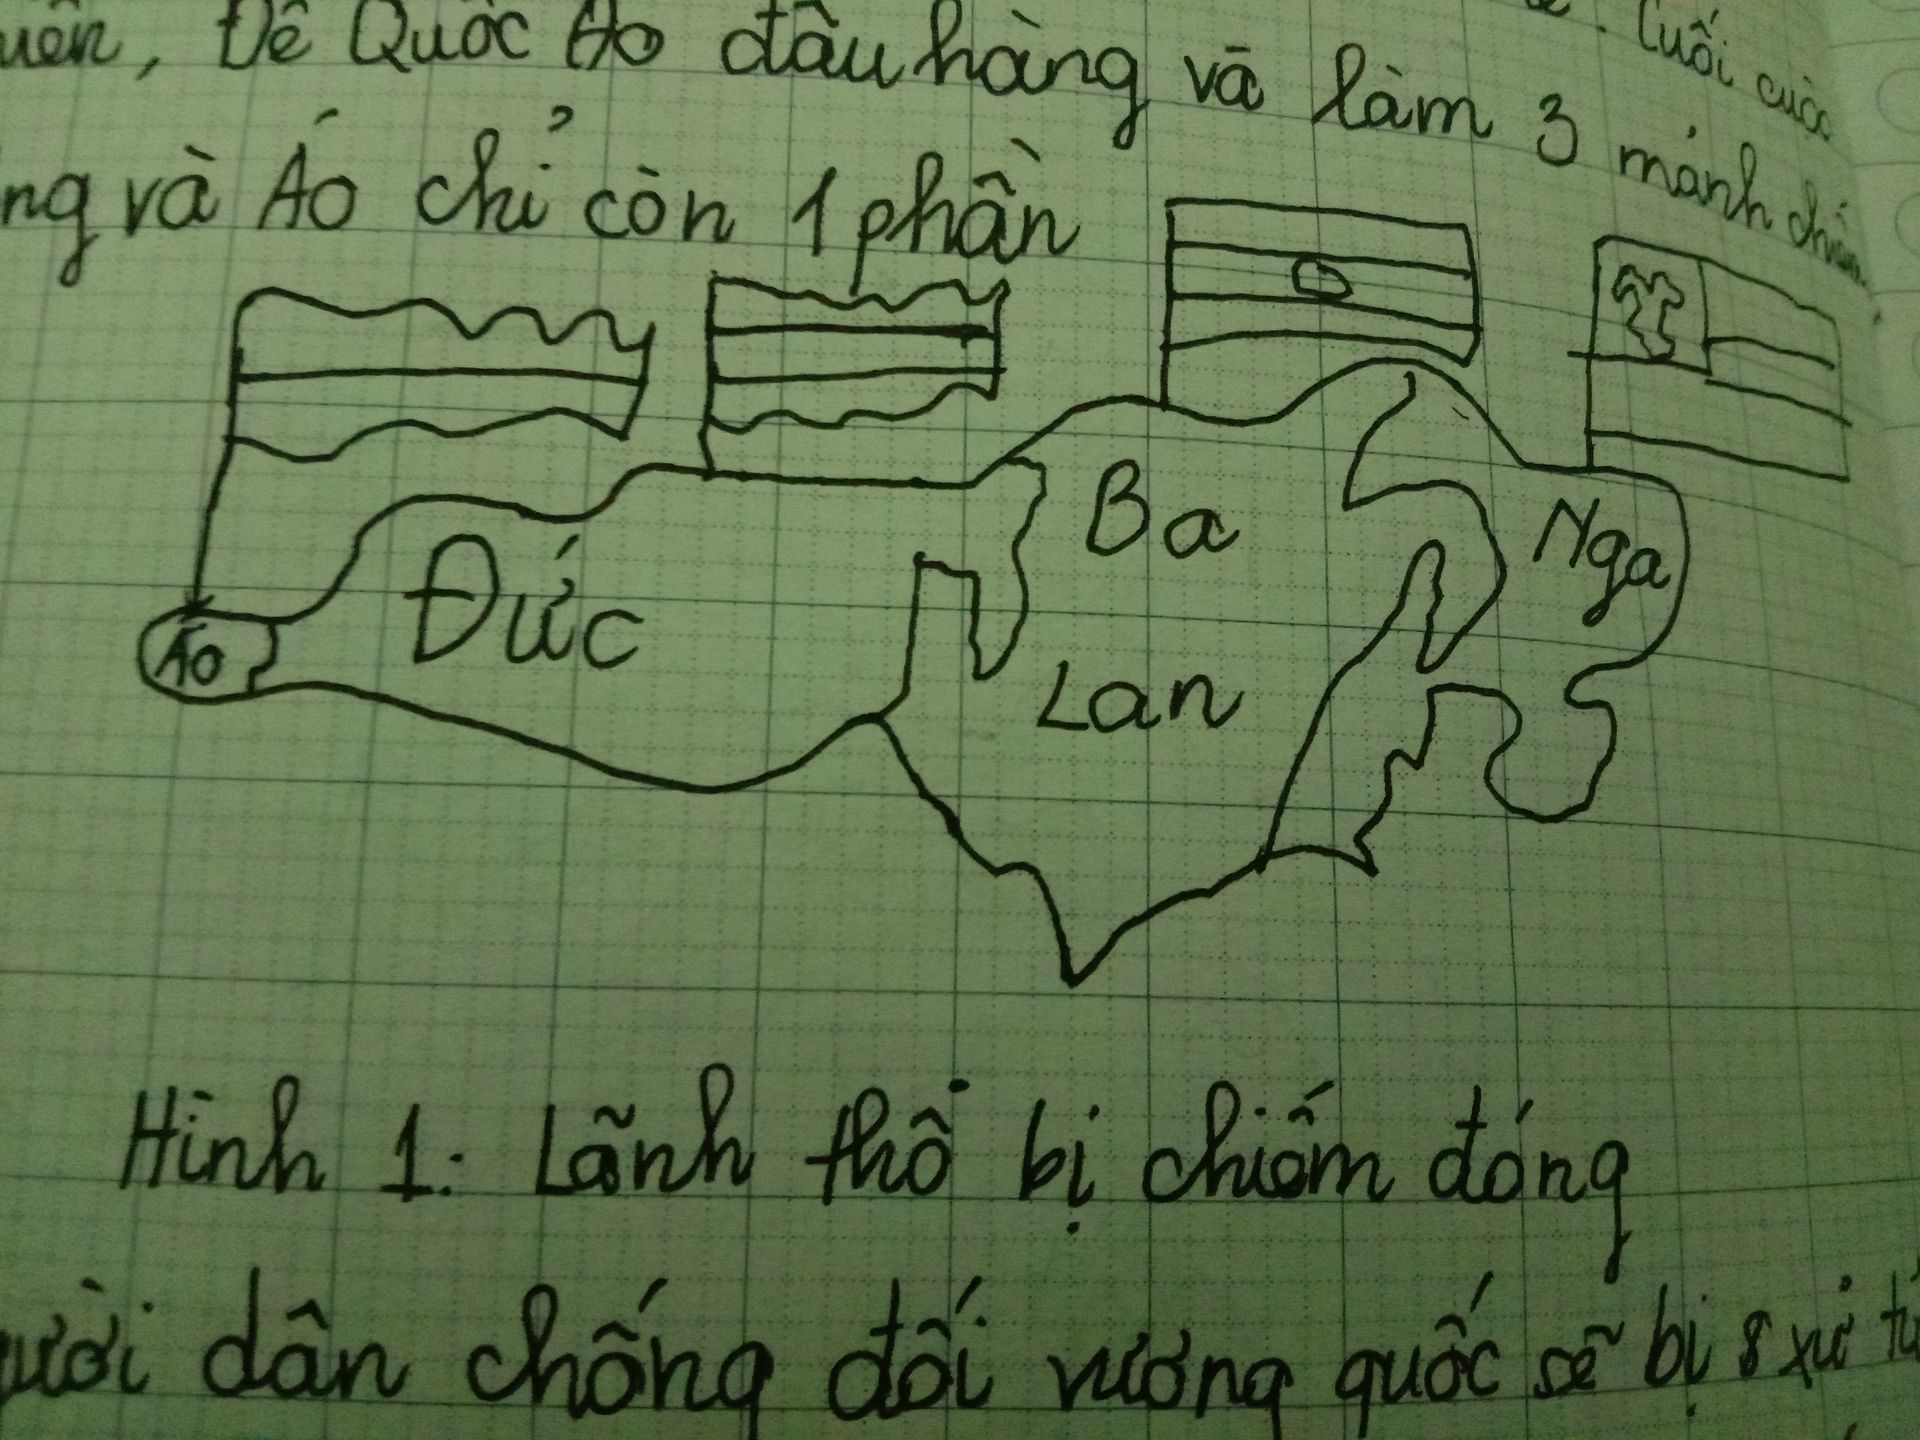 Đế Quốc Áo đầu hàng và làm 3 mảnh
Cuối cuộc
và Áo chỉ còn 1 phần
Áo
Đức
Ba
Lan
Nga
Hình 1: Lãnh thổ bị chiếm đóng
dân chống đối vương quốc sẽ bị xử